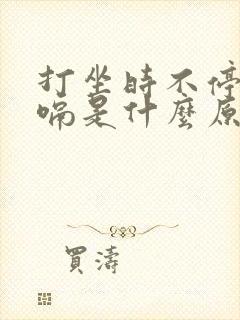 打坐時不停
嗝是什麼原
買濤